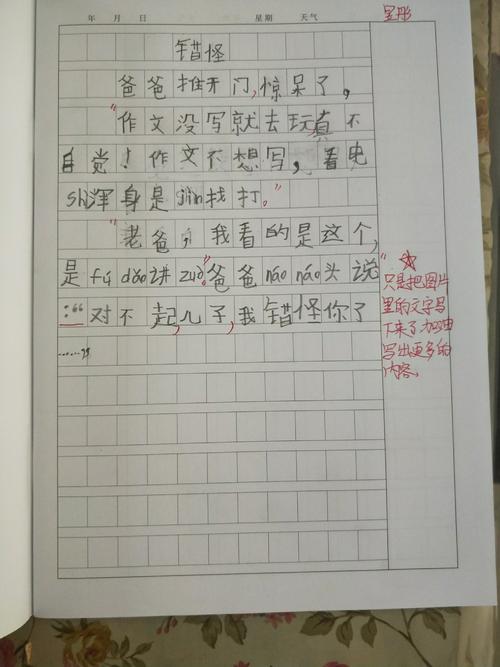 年 月 日 星期 天气
错怪
爸爸推开门,惊呆了,
"作文没写就去玩真不
自觉!作文不想写,看电
shì浑身是jìn找打。"
"老爸,我看的是这个,
是fǔ dǎo讲zuò。"爸爸náo náo头说
:"对不起,儿子,我错怪你了
……"
只是把图片
里的文字写
下来了,加油
写出更多的
内容。